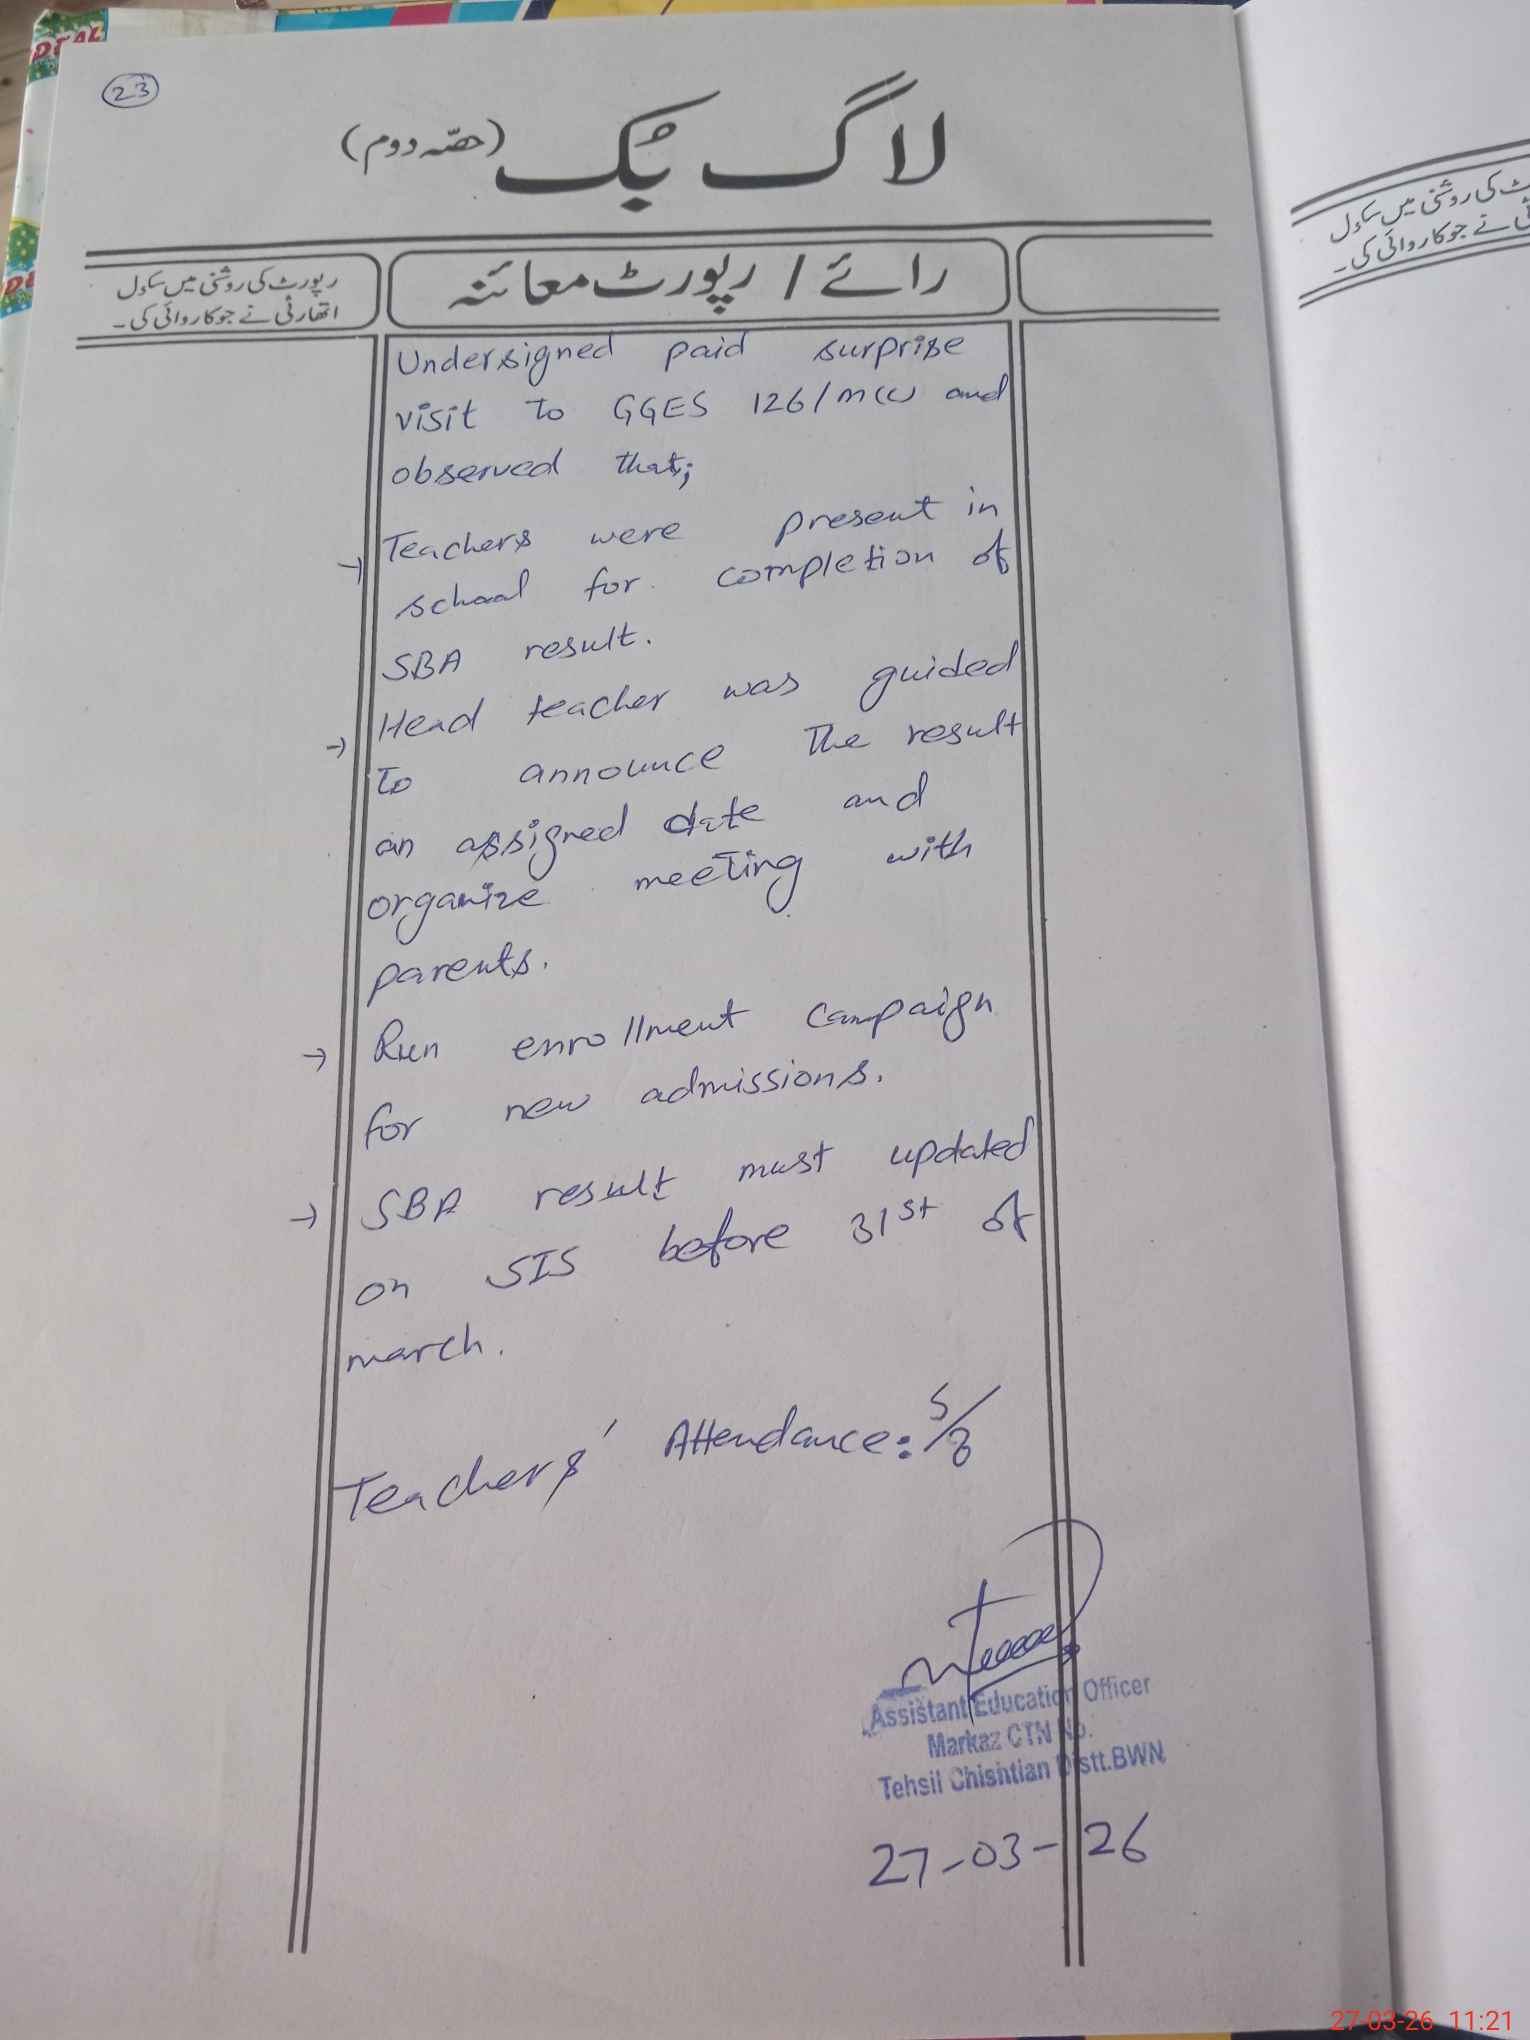 23
لاگ بُک (حصّہ دوم)
رپورٹ کی روشنی میں سکول
اتھارٹی نے جو کاروائی کی۔
رائے / رپورٹ معائنہ
Undersigned paid surprise
visit to GGES 126/m(c) and
observed that;
→ Teachers were present in
school for completion of
SBA result.
→ Head teacher was guided
to announce the result
an assigned date and
organize meeting with
parents.
→ Run enrollment campaign
for new admissions.
→ SBA result must updated
on SIS before 31st of
march.
Teachers' Attendance: 5/
Assistant Education Officer
Markaz CTN No.
Tehsil Chishtian Distt.BWN
27-03-26
کی روشنی میں سکول
نے جو کاروائی کی۔
27-03-26 11:21